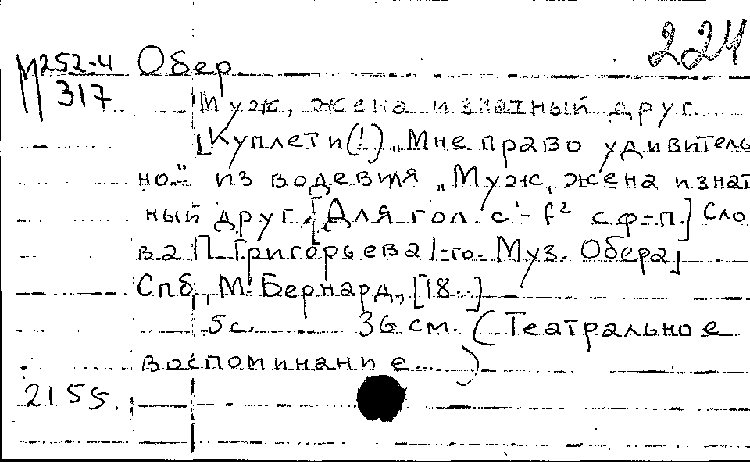 224
М252-4 Обер
317
Муж, жена и знатный друг.
[Куплети(!) „Мне право удивитель
но..." из водевиля „Муж, жена и знат
ный друг. [Для гол. с¹-f² с ф-п.] Сло
ва П. Григорьева 1-го. Муз. Обера]
Спб, М. Бернард, [18..]
5с. 36 см. (Театральное
воспоминание...)
2155.